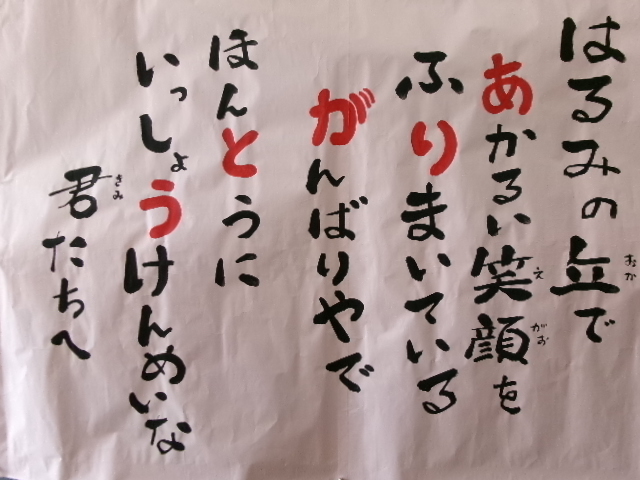 はるみの丘で
あかるい笑顔を
ふりまいている
がんばりやで
ほんとうに
いっしょうけんめいな
君たちへ
おか
えがお
きみ